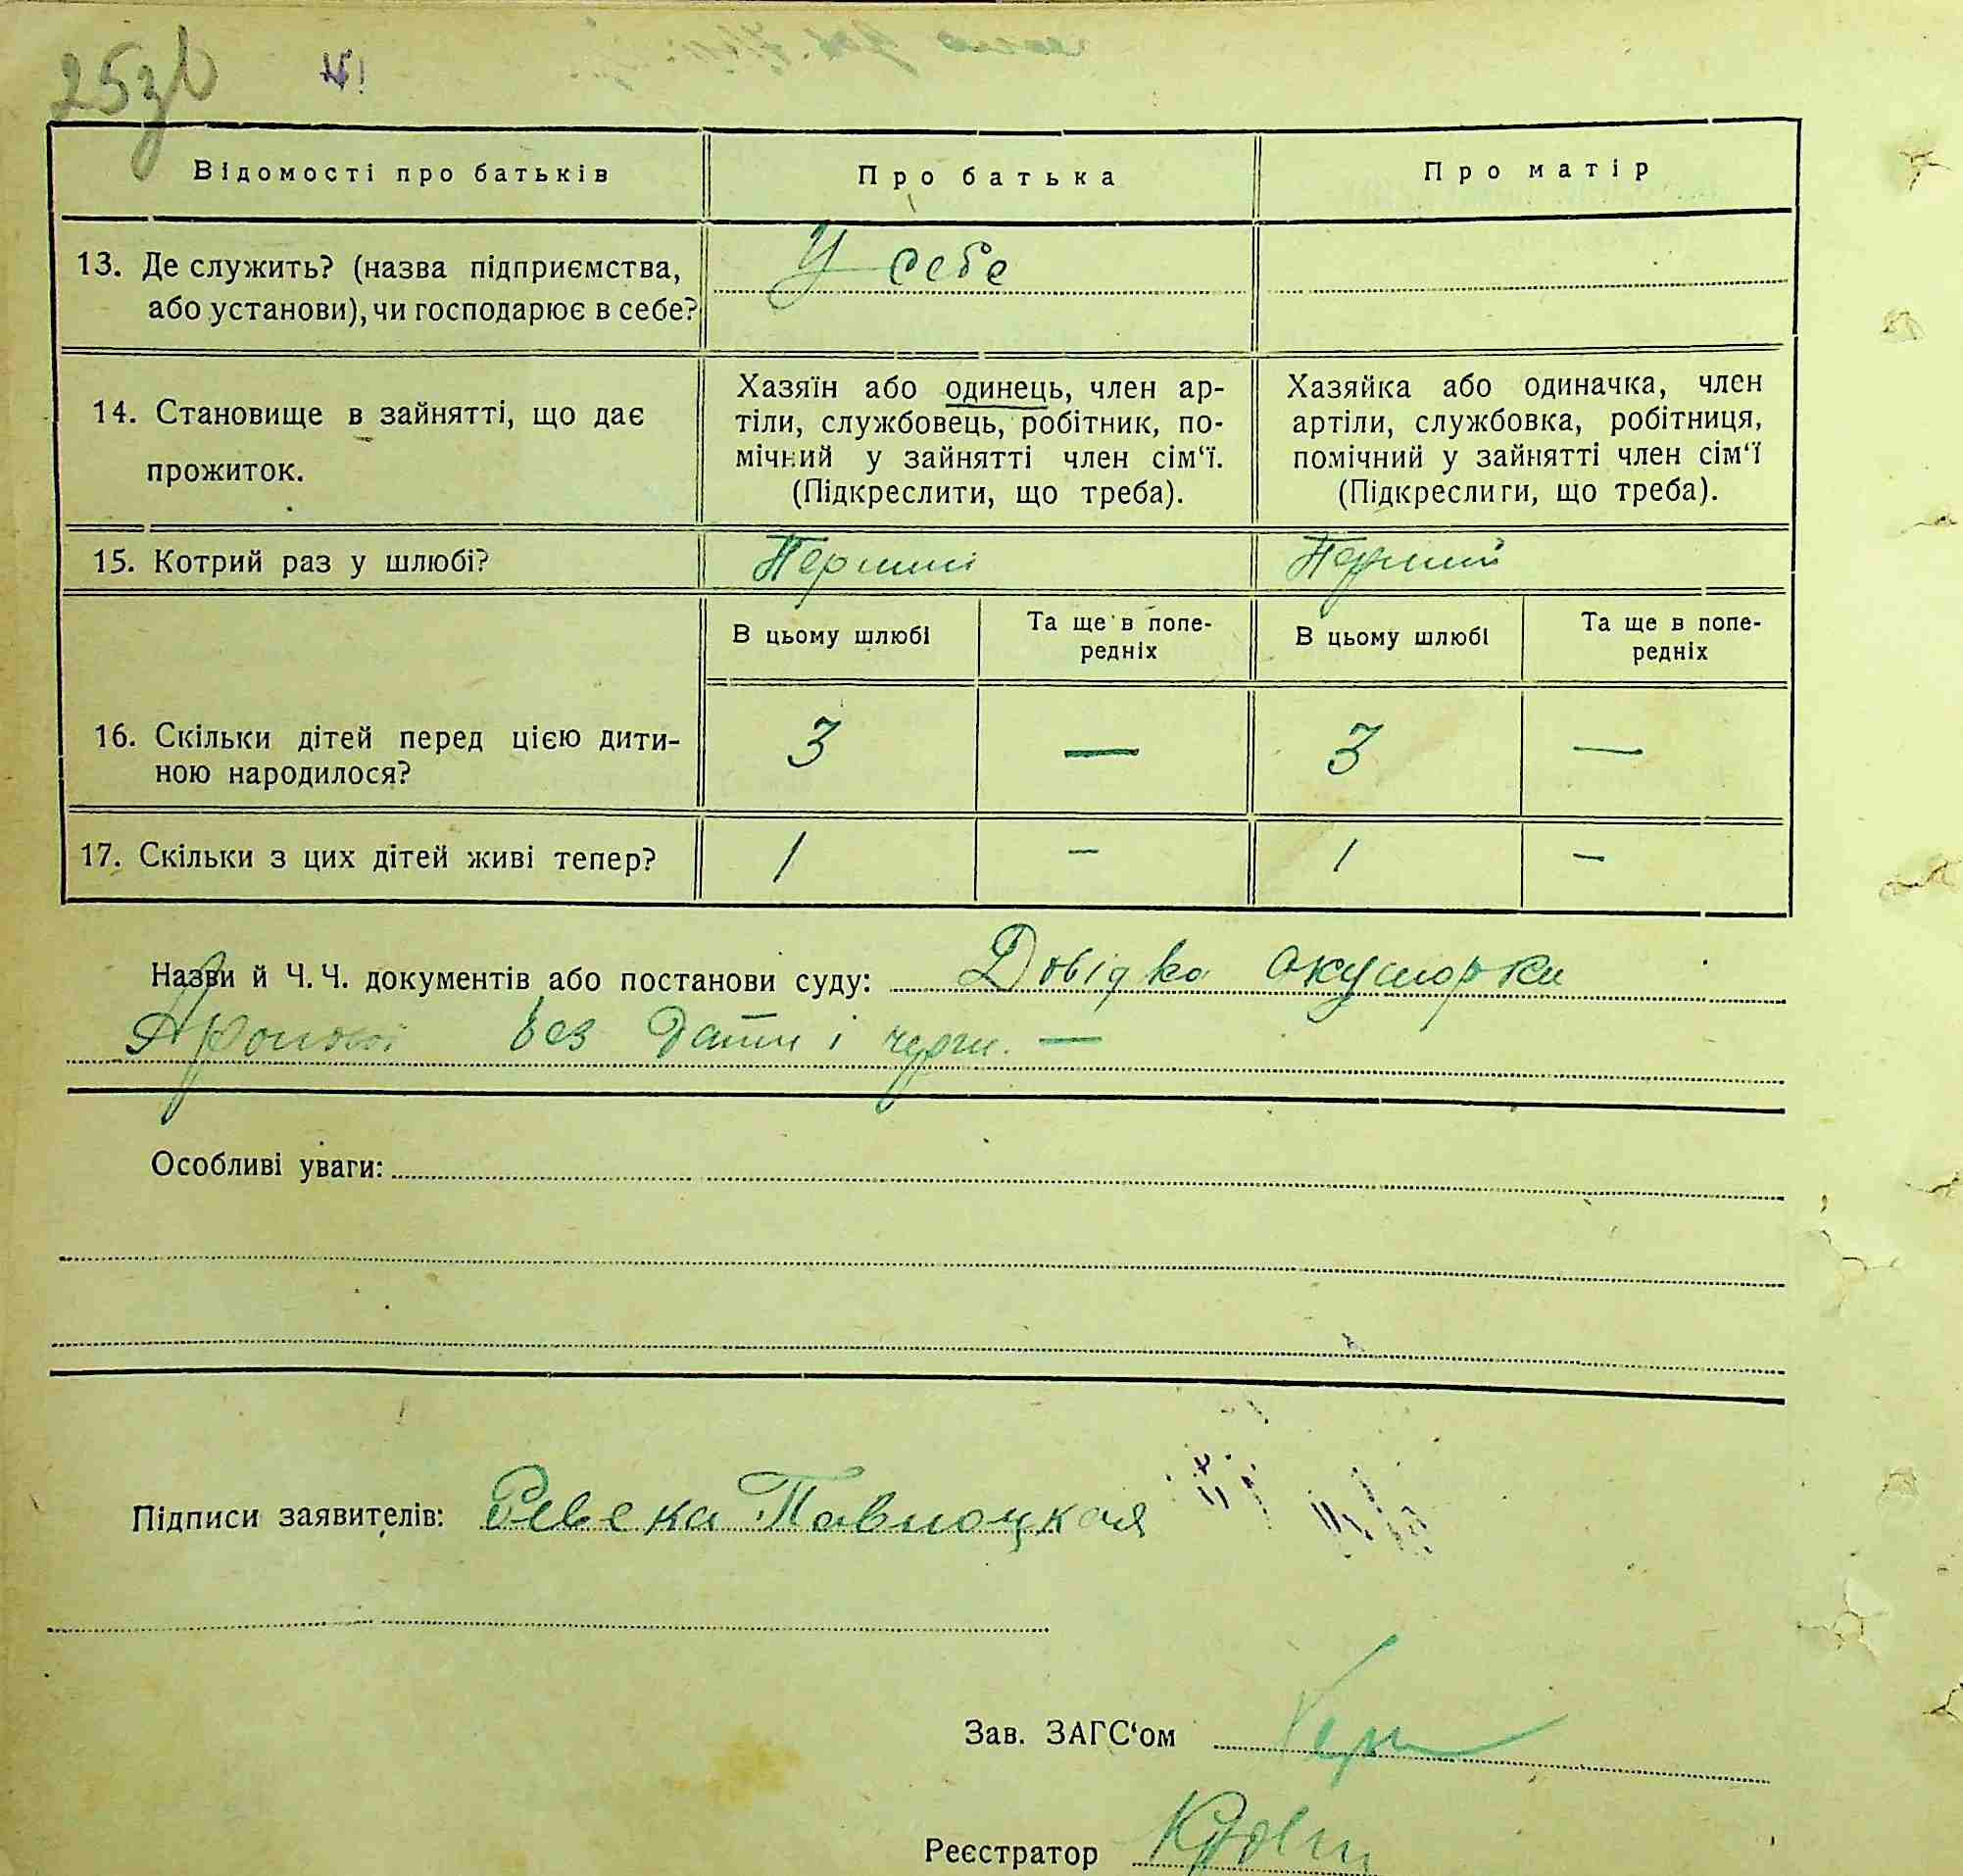 25зв
Відомості про батьків
Про батька
Про матір
13. Де служить? (назва підприємства,
або установи), чи господарює в себе?
У себе
14. Становище в зайнятті, що дає
прожиток.
Хазяїн або одинець, член ар-
тіли, службовець, робітник, по-
мічний у зайнятті член сім‘ї.
(Підкреслити, що треба).
Хазяйка або одиначка, член
артіли, службовка, робітниця,
помічний у зайнятті член сім‘ї
(Підкреслити, що треба).
15. Котрий раз у шлюбі?
Перший
Перший
В цьому шлюбі
Та ще в попе-
редніх
В цьому шлюбі
Та ще в попе-
редніх
16. Скільки дітей перед цією дити-
ною народилося?
3
—
3
—
17. Скільки з цих дітей живі тепер?
1
—
1
—
Назви й Ч. Ч. документів або постанови суду: Довідка акушорки
без дати і черги. —
Особливі уваги:
Підписи заявителів: Ревека
Зав. ЗАГС‘ом
Реєстратор